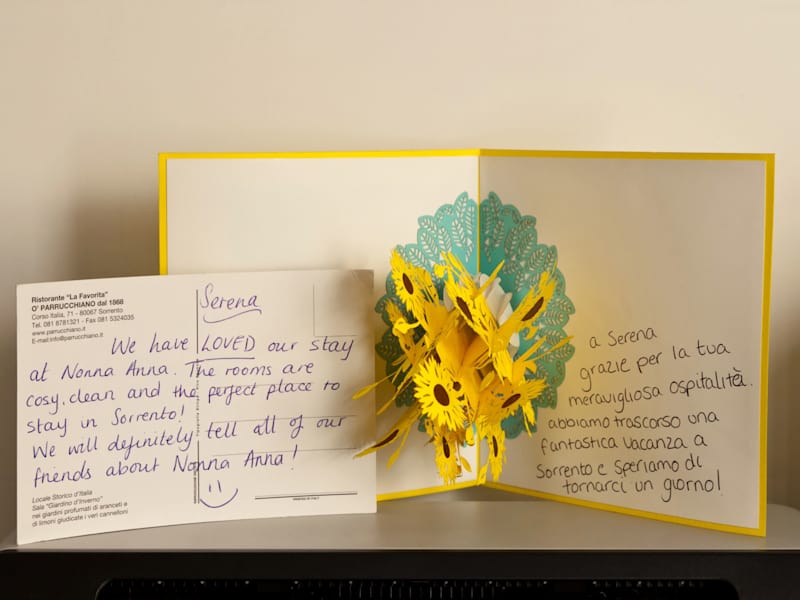 Ristorante "La Favorita"
O' PARRUCCHIANO dal 1868
Corso Italia, 71 - 80067 Sorrento
Tel. 081 8781321 - Fax 081 5324035
www.parrucchiano.it
E-mail:info@parrucchiano.it
Serena
We have LOVED our stay
at Nonna Anna. The rooms are
cosy, clean and the perfect place to
stay in Sorrento!
We will definitely tell all of our
friends about Nonna Anna!
Locale Storico d'Italia
Sala "Giardino d'Inverno"
nei giardini profumati di aranceti e
di limoni giudicate i veri cannelloni
PRINTED IN ITALY
a Serena
grazie per la tua
meravigliosa ospitalità.
abbiamo trascorso una
fantastica vacanza a
Sorrento e speriamo di
tornarci un giorno!